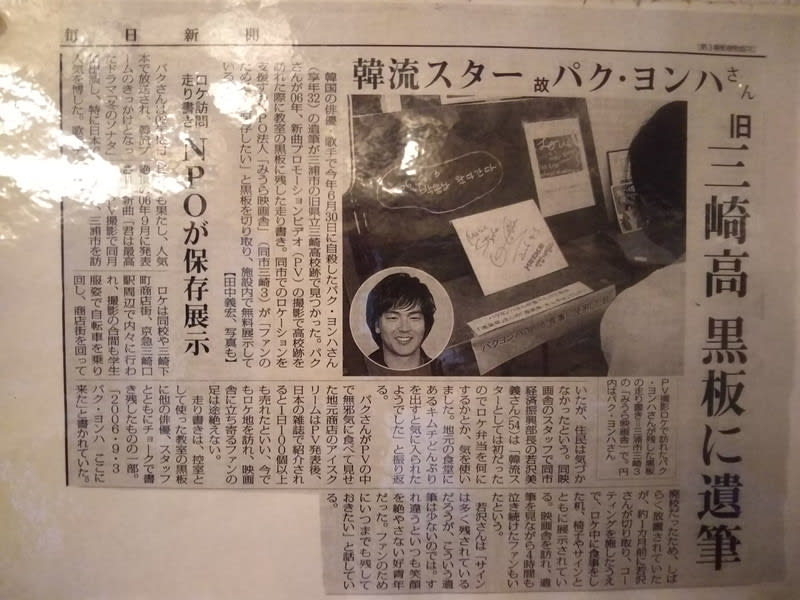 毎日新聞
韓流スター 故パク・ヨンハさん
旧三崎高 黒板に遺筆
ロケ訪問
走り書き
NPOが保存展示
韓国の俳優・歌手で今年6月30日に自殺したパク・ヨンハさん
(享年32)の遺筆が三浦市の旧県立三崎高校跡で見つかった。パク
さんが06年、新曲プロモーションビデオ(PV)の撮影で高校跡を
訪れた際に教室の黒板に残した走り書き。同市でのロケーションを
支援するNPO法人「みうら映画舎」(同市三崎3)が「ファンの
ために保存したい」と黒板を切り取り、施設内で無料展示して
いる。
【田中義宏、写真も】
ームのきっかけとな
たドラマ「冬のソナタ」
人気を博した。歌
の06年9月に発表
新曲「君は最高
V撮影で同月
三浦市を訪
ロケは同校や三崎下
町商店街、京急三崎口
駅周辺で内々に行わ
れ、撮影の合間も学生
服姿で自転車を乗り
回し、商店街を回って
PV撮影ロケで訪れたパク
・ヨンハさんが残した黒板
の走り書き=三浦市三崎3
の「みうら映画舎」で。円
内はパク・ヨンハさん
いたが、住民は気づか
なかったという。同映
画舎のスタッフで同市
経済振興部長の若沢美
義さん(54)は「韓流ス
ターとしては初だった
のでロケ弁当を何に
するかとか、気を使い
ました。地元の食堂に
あるキムチどんぶり
を出すと気に入られた
ようでした」と振り返
る。
パクさんがPVの中
で無邪気に食べて見せ
た地元商店のアイスク
リームはPV発表後、
日本の雑誌で紹介され
ると1日100個以上
も売れたといい、今で
もロケ地を訪れ、映画
舎に立ち寄るファンの
足は途絶えない。
走り書きは、控室と
して使った教室の黒板
に他の俳優、スタッフ
とともにチョークで書
き残したものの一部。
「2006・9・3
パク・ヨンハ ここに
来た」と書かれていた。
廃校だったため、しば
らく放置されていた
が、約1カ月前に若沢
さんが切り取り、コー
ティングを施したうえ
で、ロケ中に食事をし
た机、椅子やサインと
ともに展示されてい
る。映画舎を訪れ、遺
筆を見ながら4時間も
泣き続けたファンもい
たという。
若沢さんは「サイン
は多く残されている
だろうが、こういう遺
筆は少ないのでは。す
れ違うといつも笑顔
を絶やさない好青年
だった。ファンのため
にいつまでも残して
おきたい」と話してい
る。